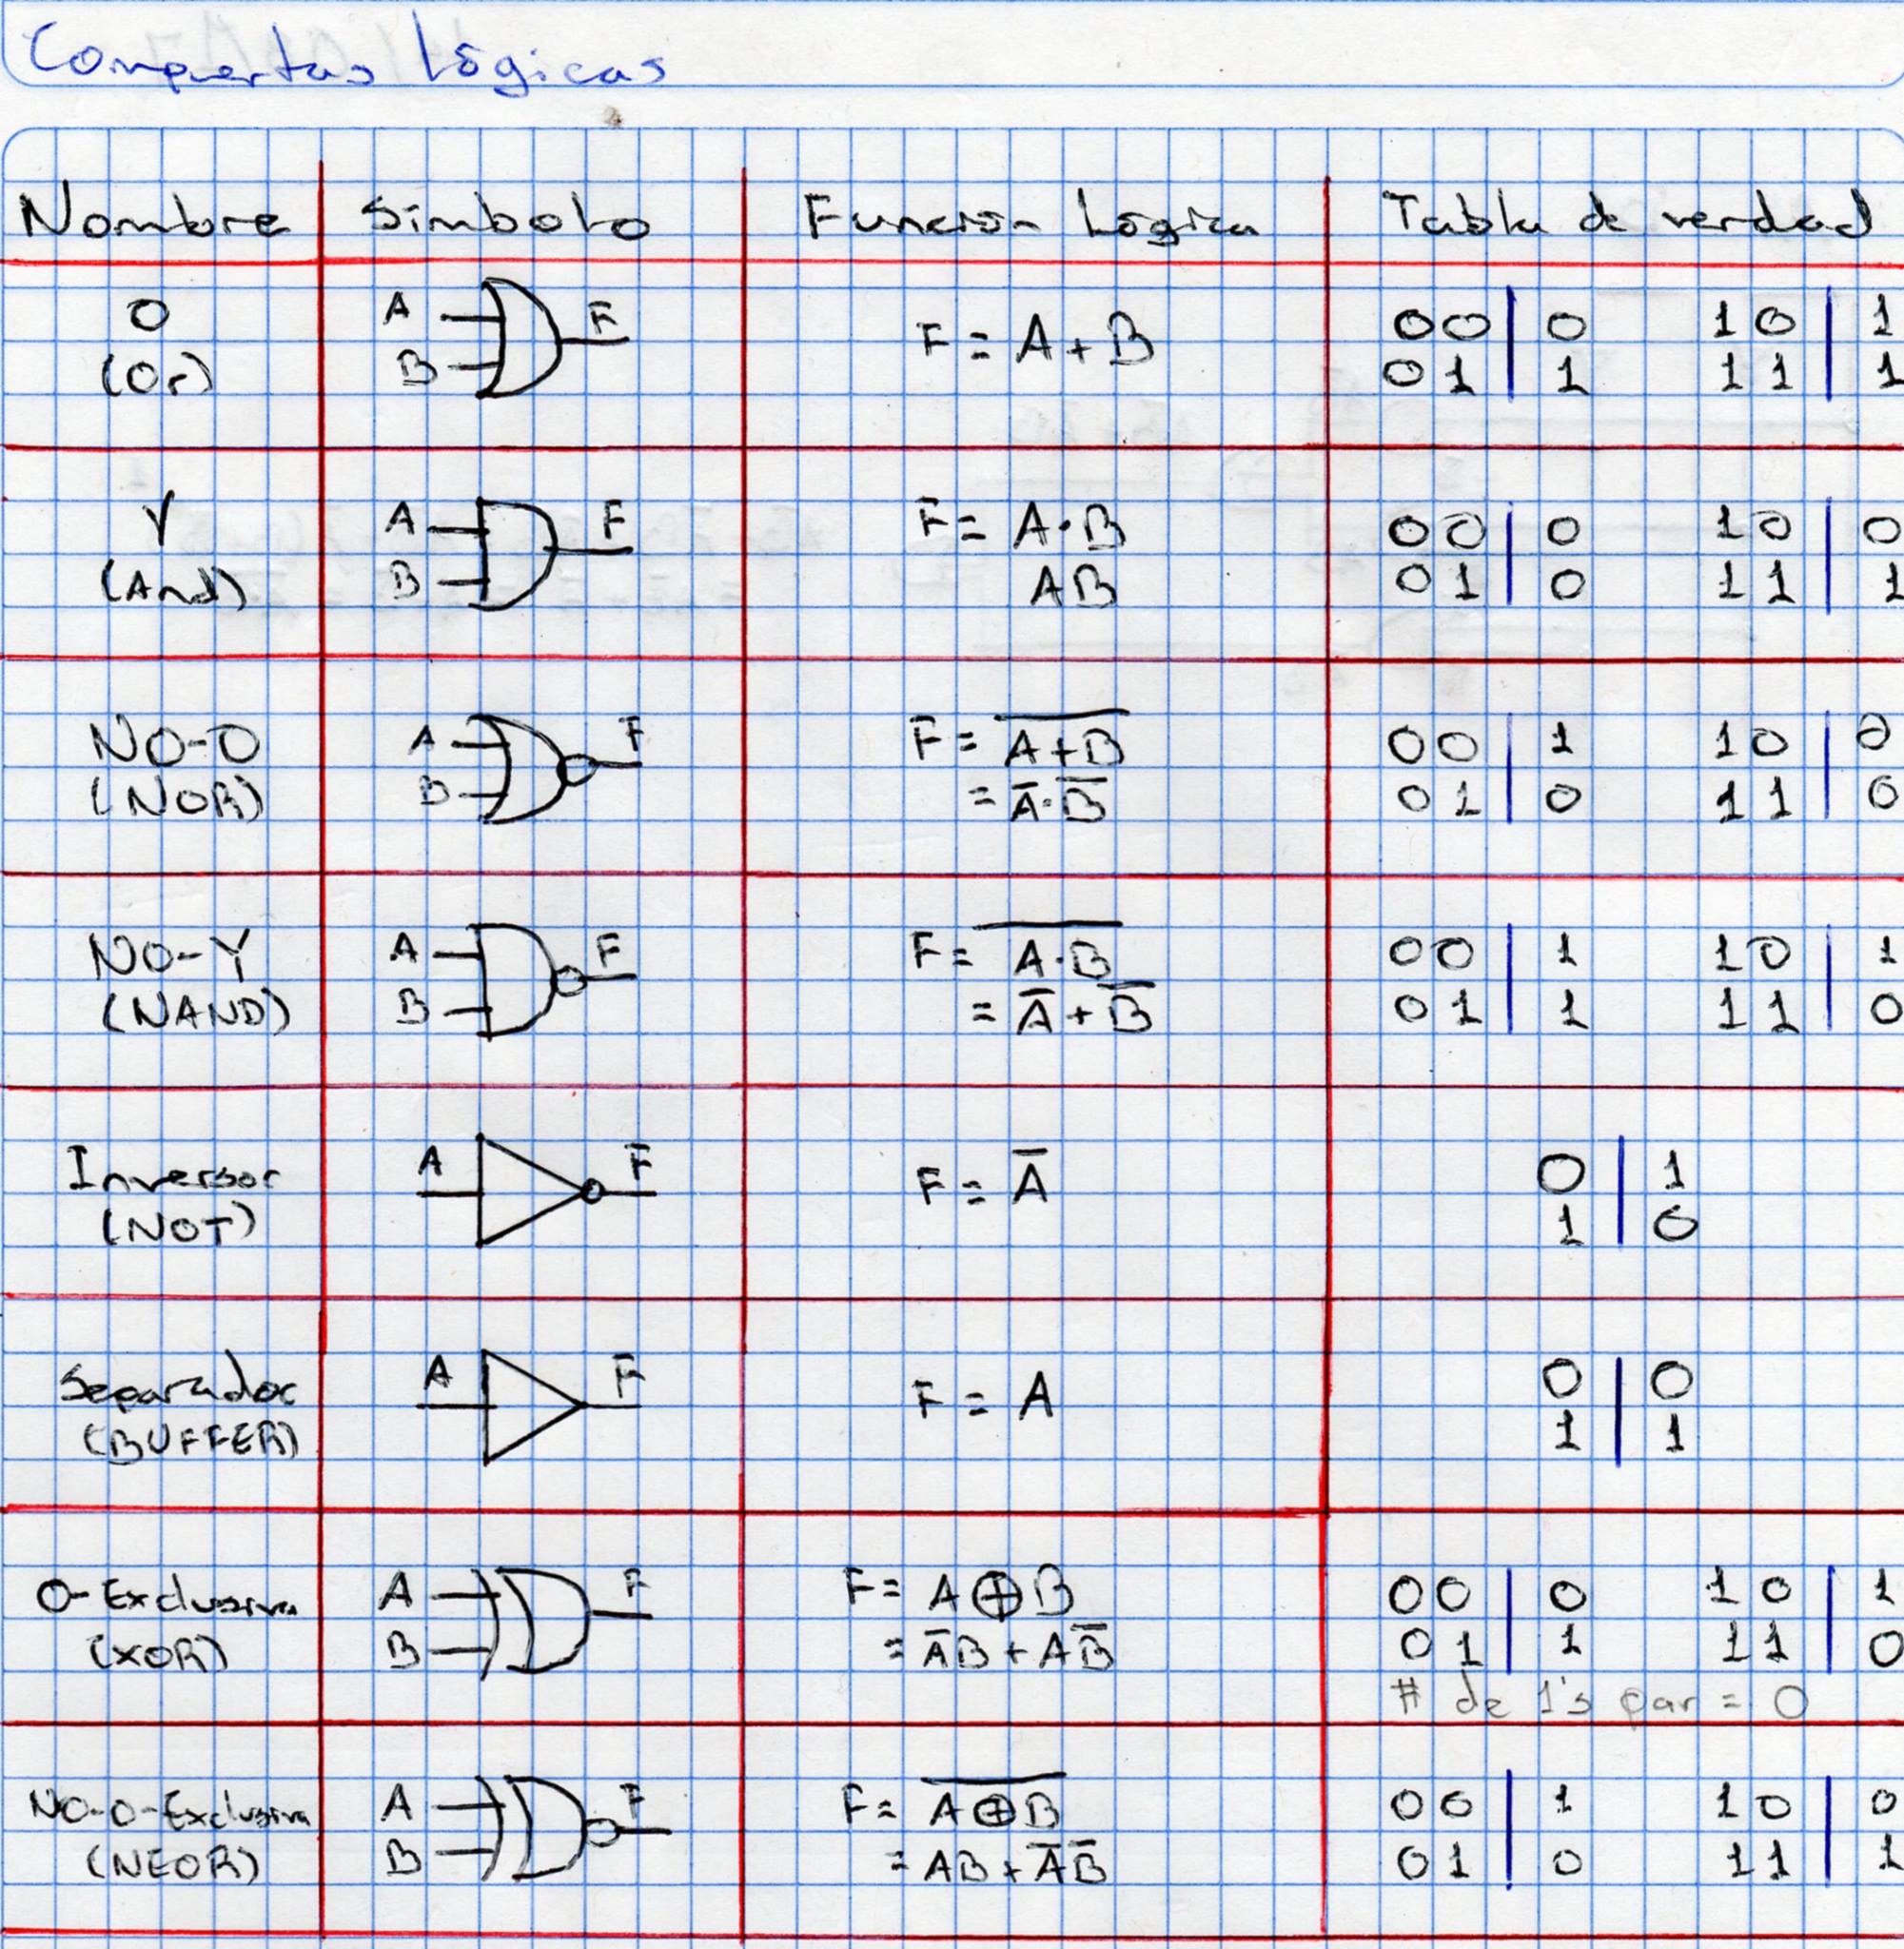 Compuertas Lógicas
Nombre Símbolo Función Lógica Tabla de verdad
O
(Or)
A
B
F
F = A + B
00 | 0 10 | 1
01 | 1 11 | 1
Y
(And)
A
B
F
F = A·B
AB
00 | 0 10 | 0
01 | 0 11 | 1
NO-O
(NOR)
A
B
F
F = \overline{A+B}
= A̅·B̅
00 | 1 10 | 0
01 | 0 11 | 0
NO-Y
(NAND)
A
B
F
F = \overline{A·B}
= A̅ + B̅
00 | 1 10 | 1
01 | 1 11 | 0
Inversor
(NOT)
A
F
F = A̅
0 | 1
1 | 0
Separador
(BUFFER)
A
F
F = A
0 | 0
1 | 1
O-Exclusiva
(XOR)
A
B
F
F = A⊕B
= A̅B + AB̅
00 | 0 10 | 1
01 | 1 11 | 0
# de 1's par = 0
NO-O-Exclusiva
(NEOR)
A
B
F
F = \overline{A⊕B}
= AB + A̅B̅
00 | 1 10 | 0
01 | 0 11 | 1